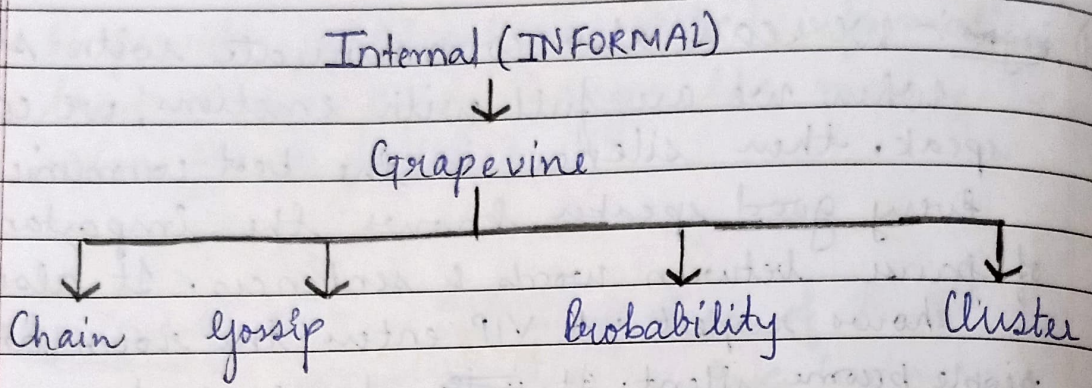 Internal (INFORMAL)
Grapevine
Chain Gossip Probability Cluster